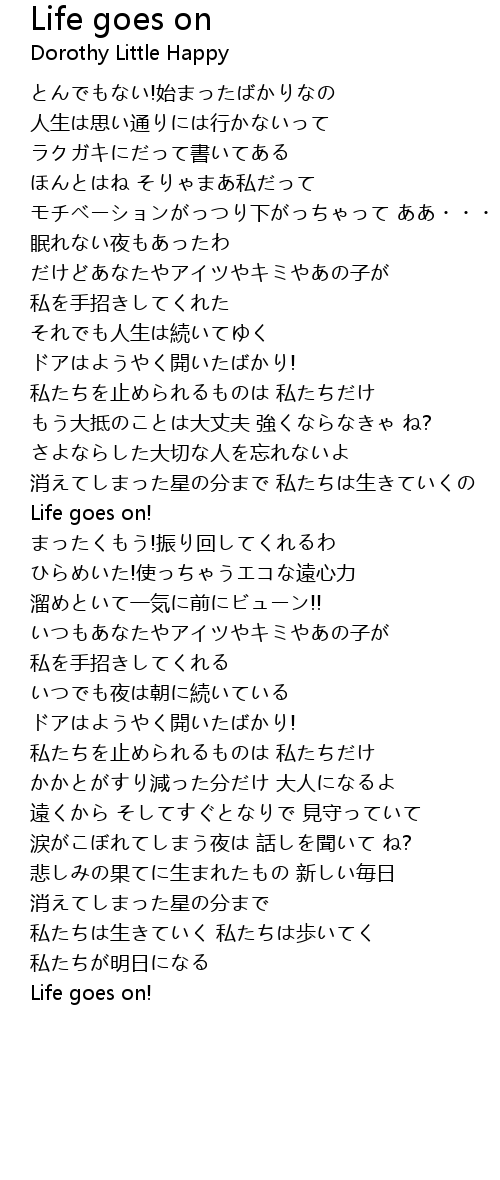 Life goes on
Dorothy Little Happy
とんでもない!始まったばかりなの
人生は思い通りには行かないって
ラクガキにだって書いてある
ほんとはね そりゃまあ私だって
モチベーションがっつり下がっちゃって ああ・・・
眠れない夜もあったわ
だけどあなたやアイツやキミやあの子が
私を手招きしてくれた
それでも人生は続いてゆく
ドアはようやく開いたばかり!
私たちを止められるものは 私たちだけ
もう大抵のことは大丈夫 強くならなきゃ ね?
さよならした大切な人を忘れないよ
消えてしまった星の分まで 私たちは生きていくの
Life goes on!
まったくもう!振り回してくれるわ
ひらめいた!使っちゃうエコな遠心力
溜めといて一気に前にビューン!!
いつもあなたやアイツやキミやあの子が
私を手招きしてくれる
いつでも夜は朝に続いている
ドアはようやく開いたばかり!
私たちを止められるものは 私たちだけ
かかとがすり減った分だけ 大人になるよ
遠くから そしてすぐとなりで 見守っていて
涙がこぼれてしまう夜は 話しを聞いて ね?
悲しみの果てに生まれたもの 新しい毎日
消えてしまった星の分まで
私たちは生きていく 私たちは歩いてく
私たちが明日になる
Life goes on!